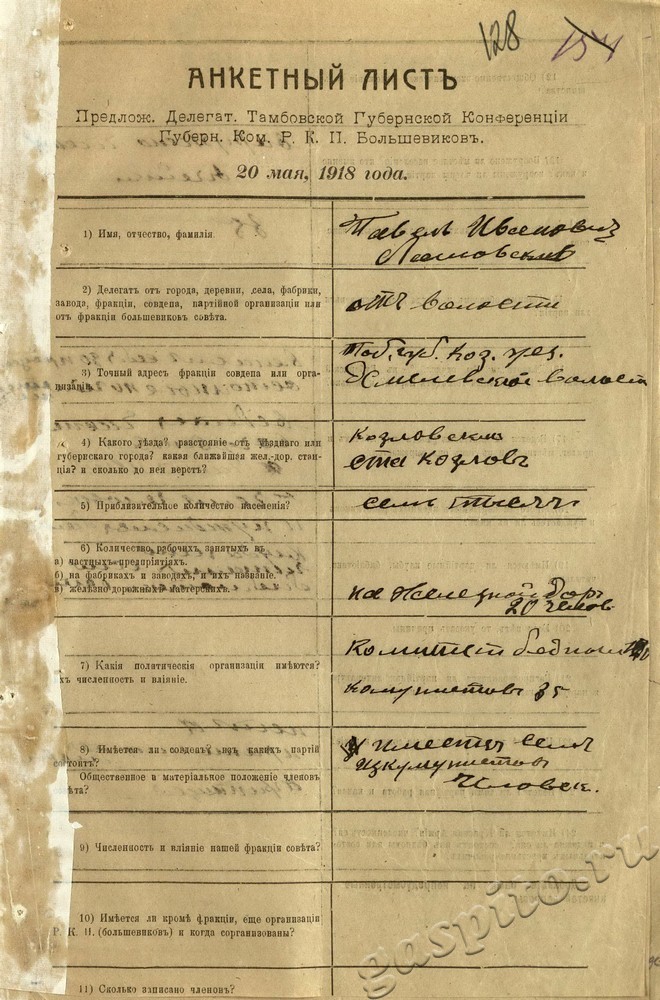 128
АНКЕТНЫЙ ЛИСТЪ
Предлож. Делегат. Тамбовской Губернской Конференціи
Губерн. Ком. Р. К. П. Большевиковъ.
20 мая, 1918 года.
1) Имя, отчество, фамилія
Павелъ Ивановичъ
2) Делегатъ отъ города, деревни, села, фабрики,
завода, фракціи, совдепа, партійной организаціи или
отъ фракціи большевиковъ совѣта.
отъ волости
3) Точный адресъ фракціи совдепа или орга-
низаціи.
Таб. губ. Коз. уез.
волости
4) Какого уѣзда? разстояніе отъ уѣзднаго или
губернскаго города? какая ближайшая жел.-дор. стан-
ція? и сколько до нея верстъ?
Козловски
ста Козловъ
5) Приблизательное количество населенія?
семь тысячъ
6) Количество рабочихъ занятыхъ въ
а) частныхъ предпріятіяхъ.
б) на фабрикахъ и заводахъ, и ихъ названіе.
в) желѣзно дорожныхъ мастерскихъ.
на Железной дор.
20 челов
7) Какія политическія организаціи имѣются?
ихъ численность и вліяніе.
Комитет бедноты
комунистовъ 35
8) Имѣется ли совдепъ? изъ какихъ партій
состоитъ?
Общественное в матеріальное положеніе членовъ
совѣта?
имеетца семь
изкумунистовъ
Человек.
9) Численность и вліяніе нашей фракціи совѣта?
10) Имѣется ли кромѣ фракціи, еще организаціи
Р. К. П. (большевиковъ) и когда сорганизованы?
11) Сколько записано членовъ?
gaspito.ru